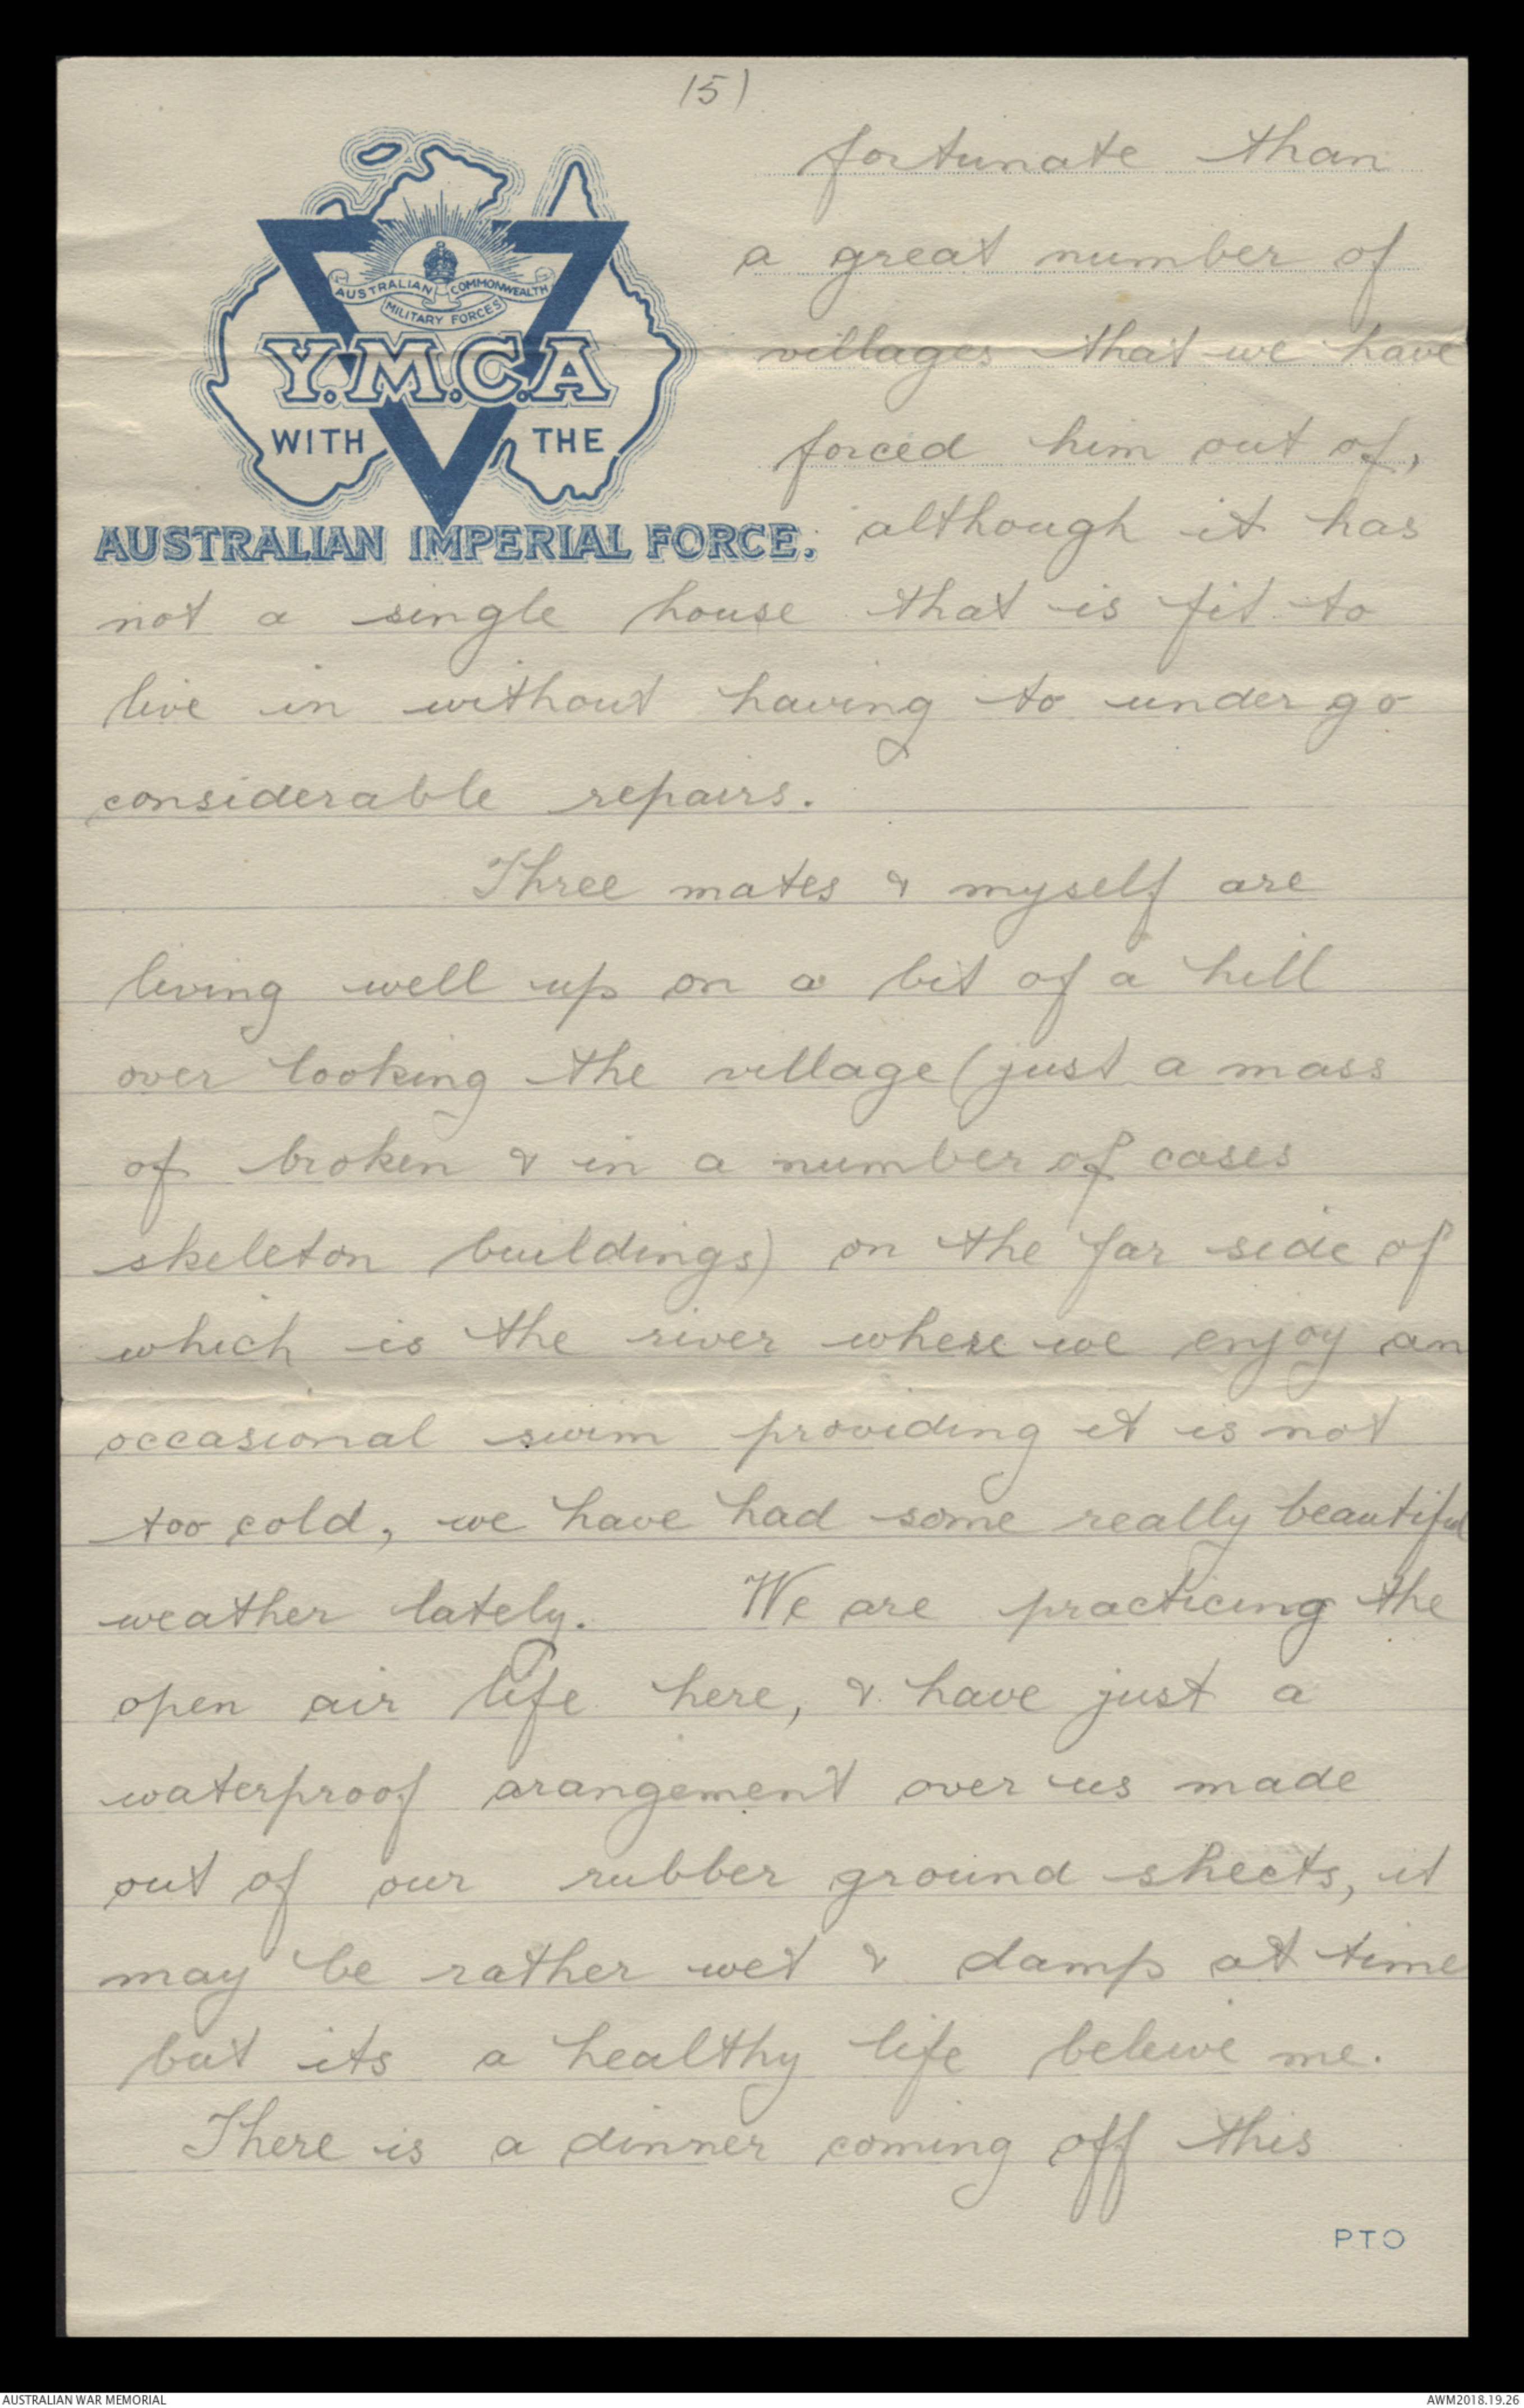 (5)
fortunate than
a great number of
villages that we have
forced him out of,
AUSTRALIAN COMMONWEALTH
MILITARY FORCES
Y.M.C.A
WITH THE
AUSTRALIAN IMPERIAL FORCE.
although it has
not a single house that is fit to
live in without having to under go
considerable repairs.
Three mates & myself are
living well up on a bit of a hill
over looking the village (just a mass
of broken & in a number of cases
skeleton buildings) on the far side of
which is the river where we enjoy an
occasional swim providing it is not
too cold, we have had some really beautiful
weather lately. We are practicing the
open air life here, & have just a
waterproof arangement over us made
out of our rubber ground sheets, it
may be rather wet & damp at time
but its a healthy life beleive me.
There is a dinner coming off this
PTO
AUSTRALIAN WAR MEMORIAL
AWM2018.19.26